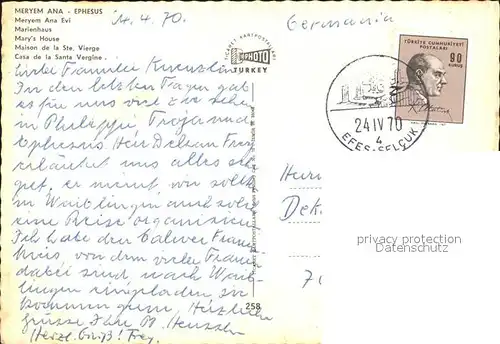 MERYEM ANA - EPHESUS
Meryem Ana Evi
Marienhaus
Mary's House
Maison de la Ste. Vierge
Casa de la Santa Vergine
24.4.70.
Germania
TICARET KARTPOSTALLARI
PHOTO
TURKEY
TÜRKİYE CUMHURİYETİ
POSTALARI
90
KURUŞ
24 IV 70
4
EFES-SELÇUK
Liebe Familie
In den letzten Tagen gab
es für uns viel zu sehen
in Philippi, Troja und
Ephesus. Herr Dekan Frey
erläutet uns alles sehr
gut, er meint, wir sollten
in Waiblingen auch solch
eine Reise organisieren
Ich habe den Calwer Frauen
kreis von dem viele Frauen
dabei sind nach Waib-
lingen eingeladen, sie
kommen gern. Herzliche
Grüsse Ihre
Herzl. Gruß! Frey.
Herrn
Dek
privacy protection
Datenschutz
7
258